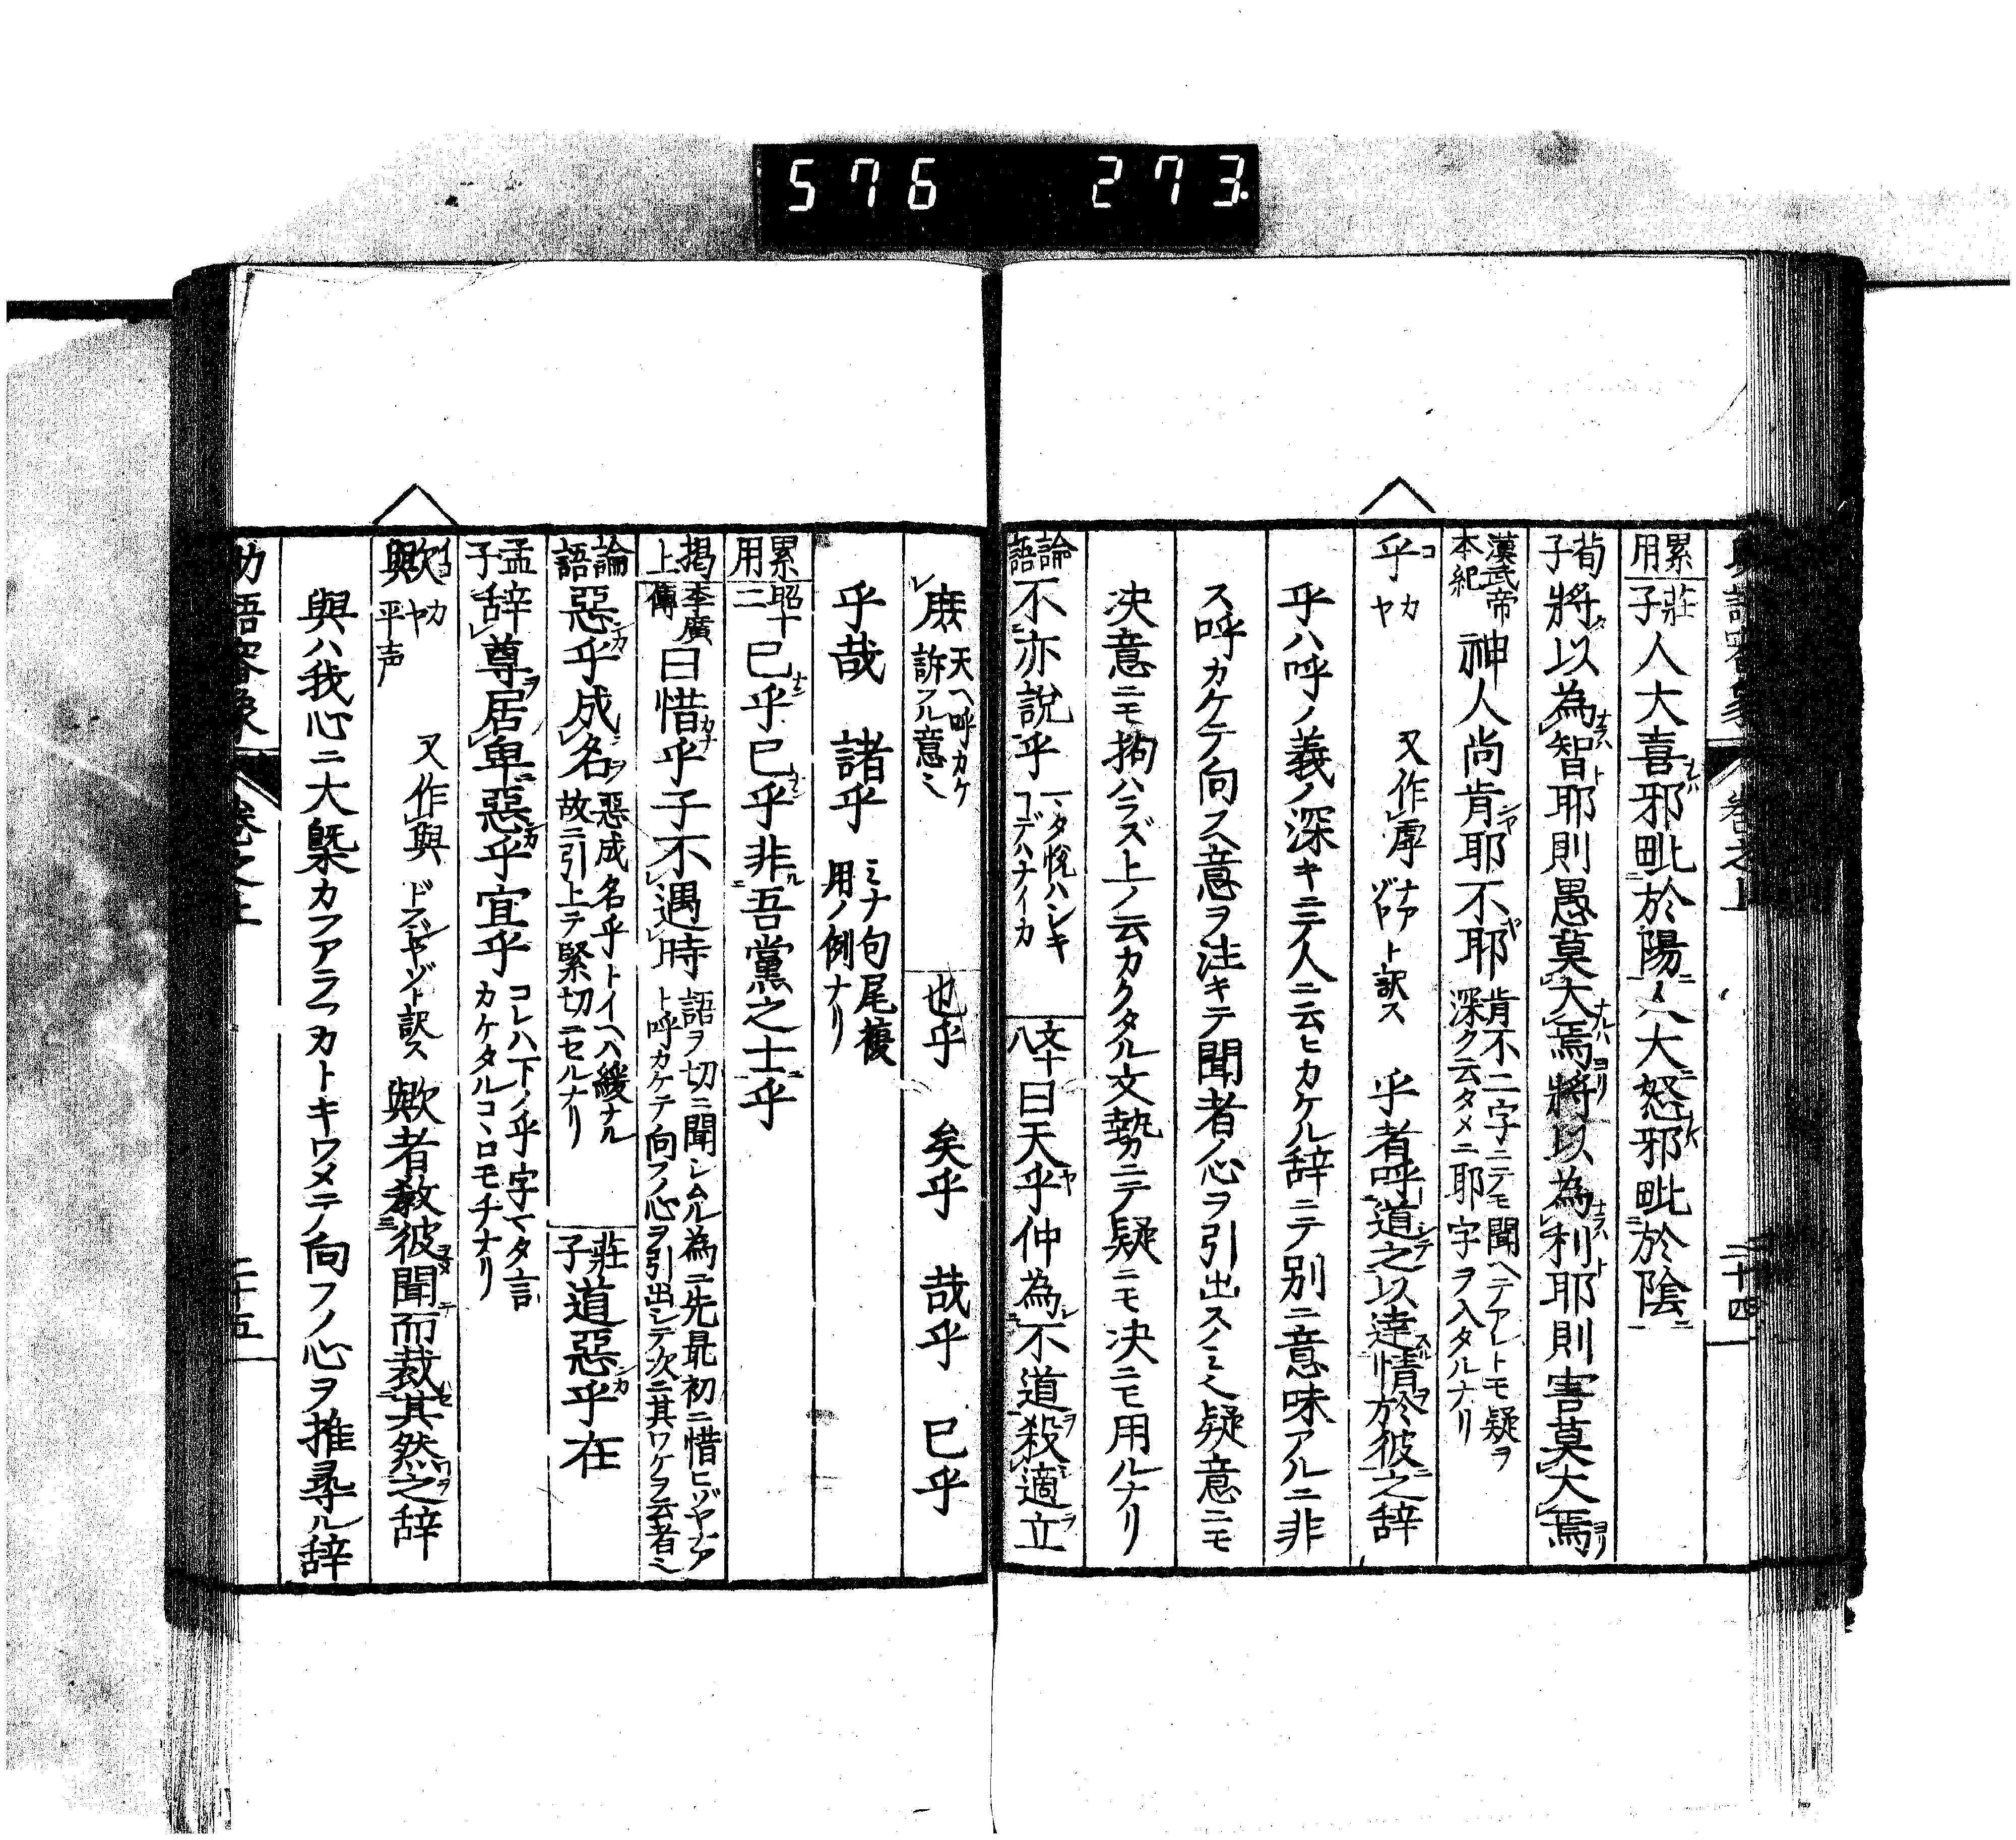 576 273.
累用 莊子 人大喜邪毗於陽人大怒邪毗於陰
荀子 將以為智耶則愚莫大焉將以為利耶則害莫大焉
漢武帝本紀 神人尚肯耶不耶 肯不二字ニテモ聞ヘテアレトモ疑ヲ深ク云タメニ耶字ヲ入タルナリ
乎 コ カヤ 又作虖 ト訳ス 乎者呼道之以達情於彼之辞
乎ハ呼ノ義ノ深キニテ人ニ云ヒカケル辞ニテ別ニ意味アルニ非
ス呼カケテ向ス意ヲ注キテ聞者ノ心ヲ引出スノミ疑意ニモ
决意ニモ拘ハラズ上ノ云カケタル文勢ニテ疑ニモ决ニモ用ルナリ
論語 不亦説乎 文十八 曰天乎仲為不道殺適立
庶 天ヘ呼カケ訴フル意ミ 也乎 矣乎 哉乎 已乎
乎哉 諸乎 ミナ句尾複用ノ例ナリ
累用 昭十二 已乎已乎非吾黨之士乎
掲上 李廣傳 曰惜乎子不遇時 語ヲ切ニ聞シムル為ニ先最初ニ惜ヒゾヤナアト呼カケテ向フノ心ヲ引出シテ次ニ其ワケヲ云者ミ
論語 惡乎成名 惡成名乎トイヘハ緩ナル故ニ引上テ緊切ニセルナリ 莊子 道惡乎在
孟子 辞尊居卑惡乎宜乎 コレハ下ノ乎字マタ言カケタルコヽロモチナリ
歟 カヤ 平声 又作與 ト訳ス 歟者教彼聞而裁其然之辞
與ハ我心ニ大槩カフアラフカトキワメテノ向フノ心ヲ推尋ル辞